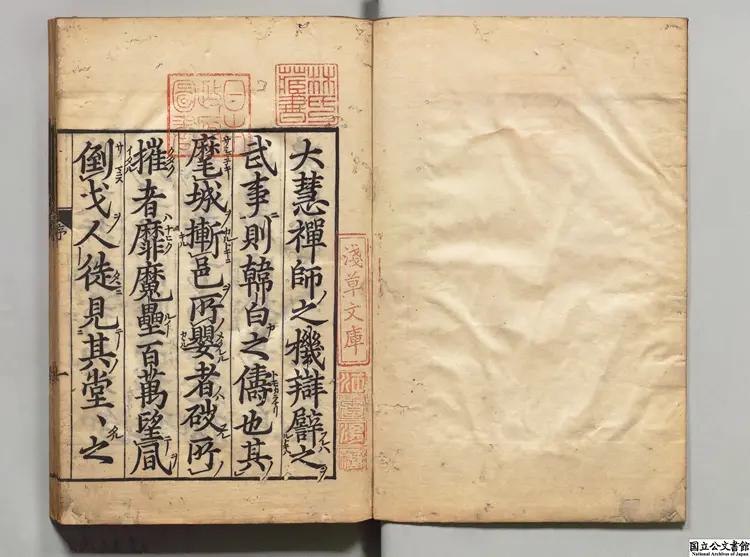 林氏藏書
日本政府圖書
淺草文庫
大慧禪師之機辯譬之
武事則韓白之儔也其
麾城摲邑所嬰者破所
摧者靡魔壘百萬望風
倒戈人徒見其堂〻之
序
一
国立公文書館
National Archives of Japan